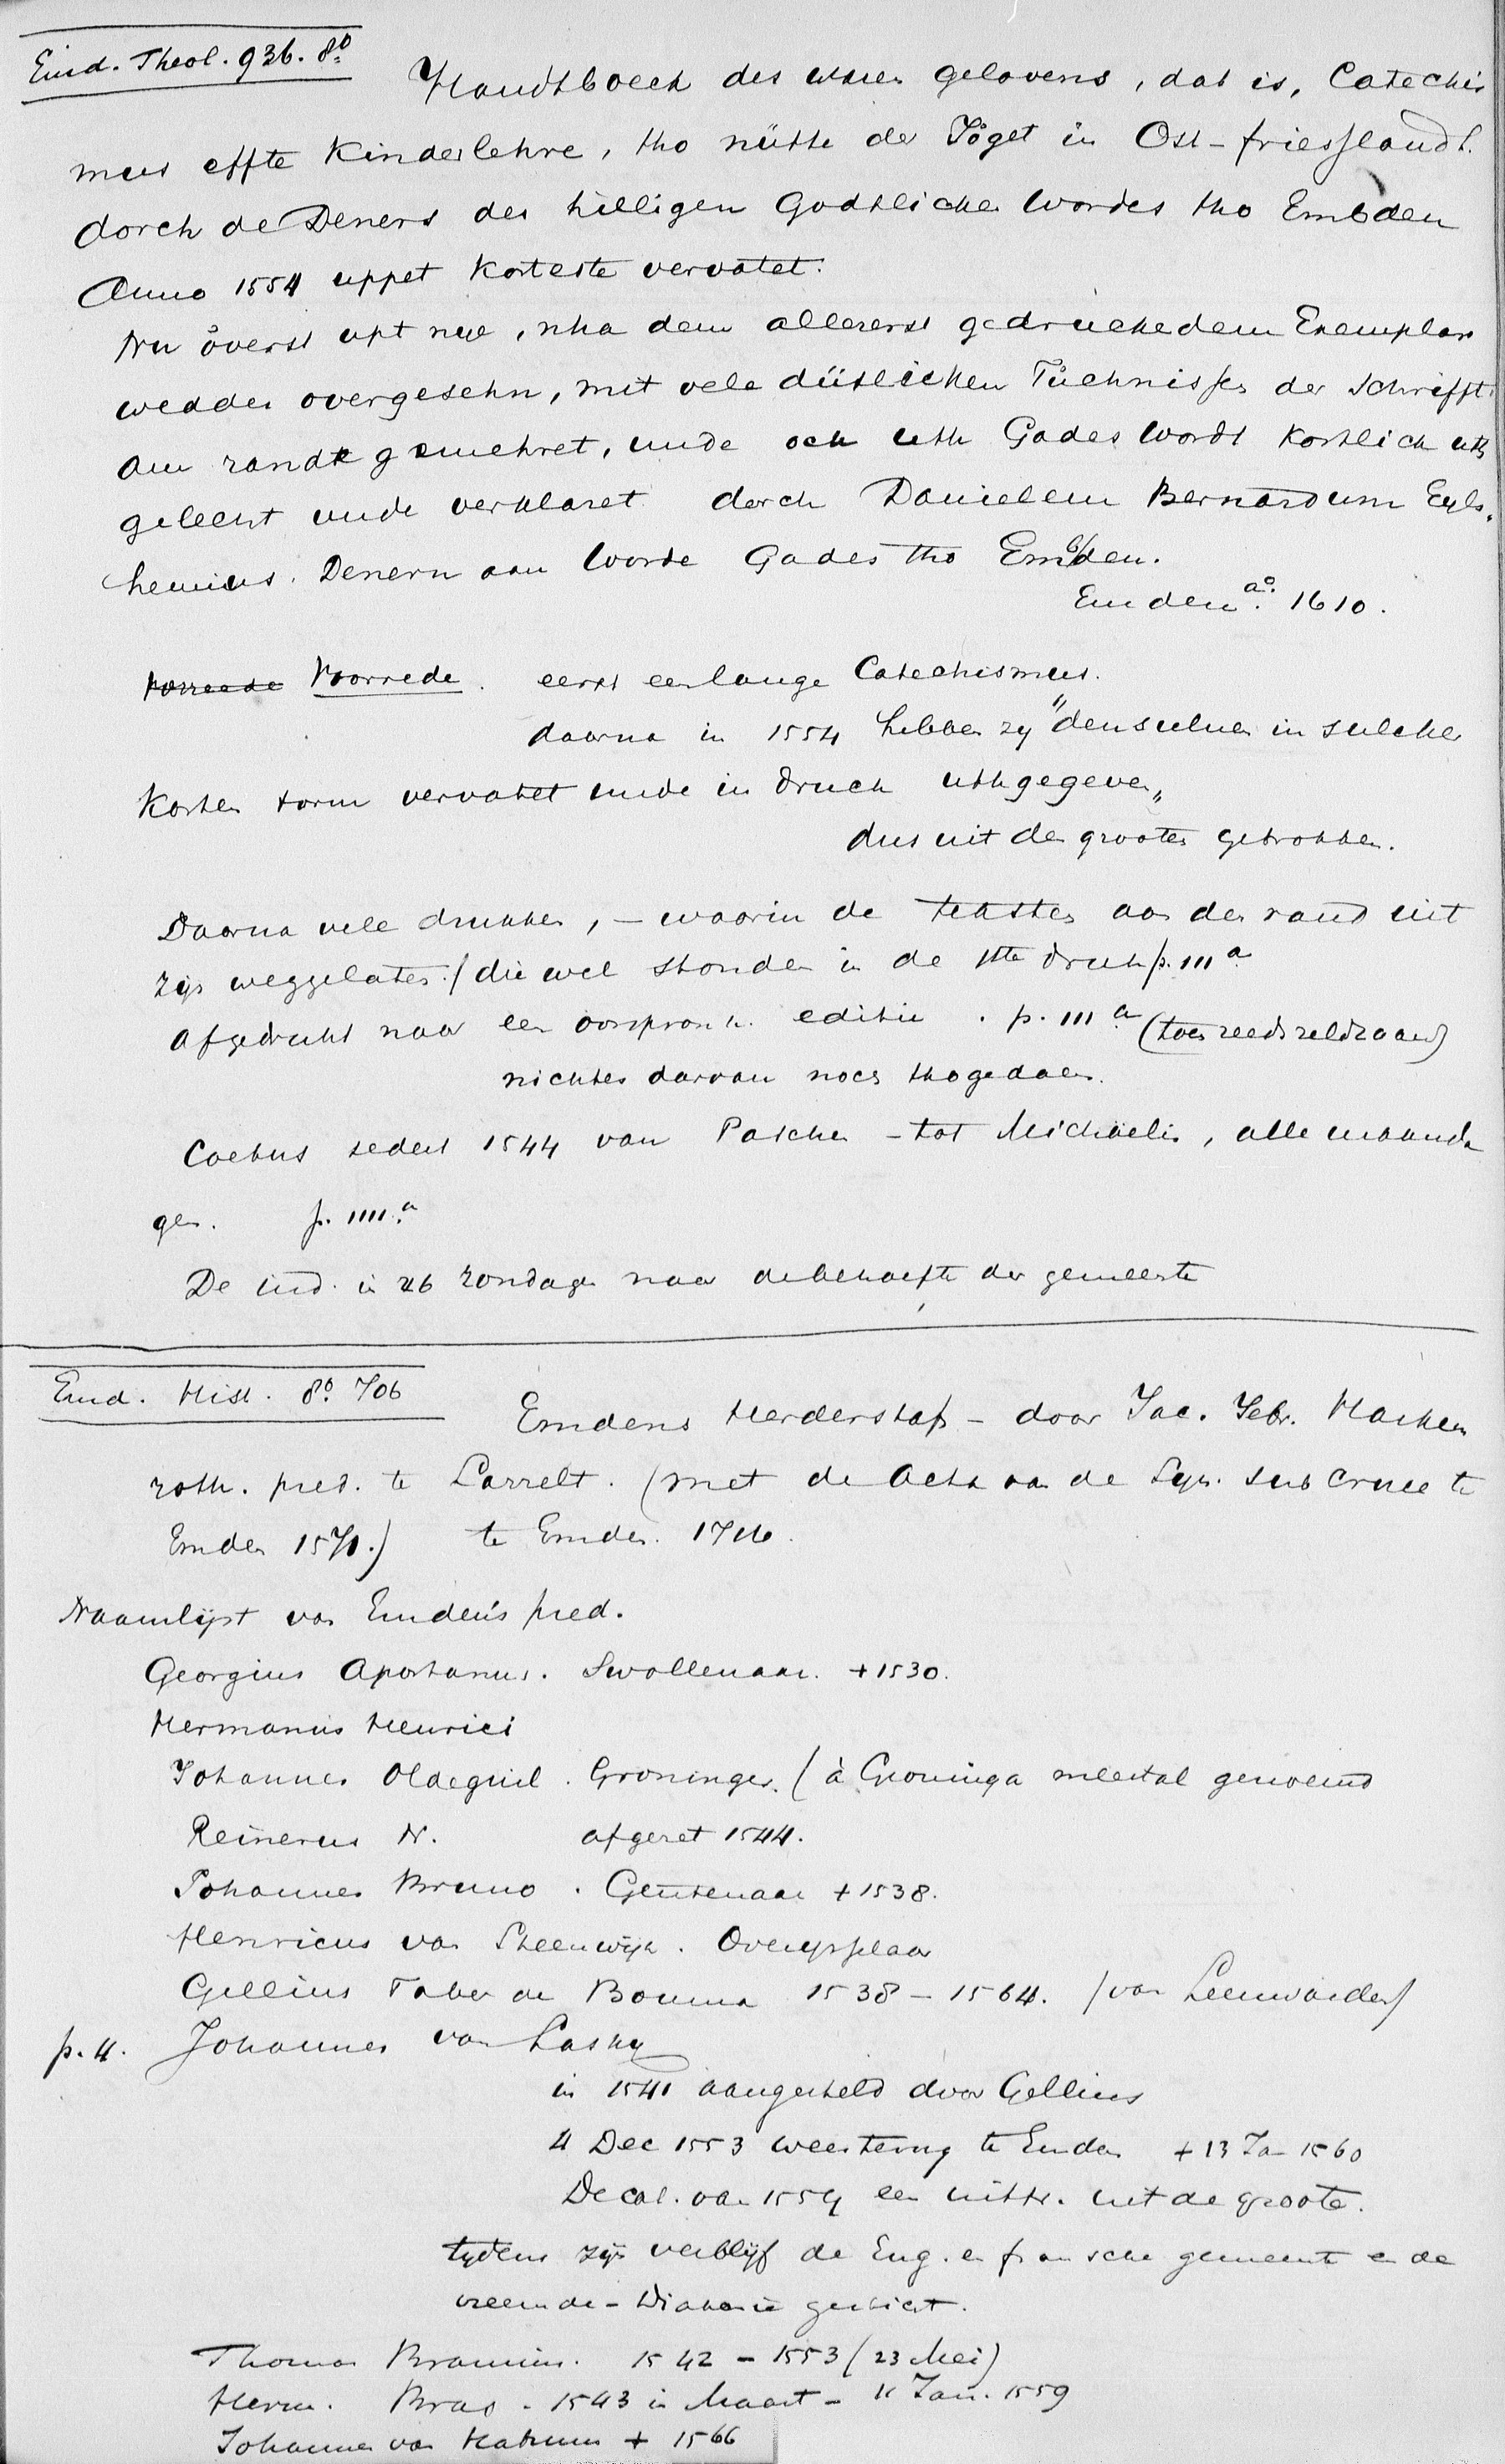 Emd. Theol. 936. 8º
Handtboeck des waren gelovens, dat is, Catechis
mus effte Kinderlehre, tho nütte der Jöget in Ost-friesslandt.
dorch de Deners des hilligen Godtliches Wordes tho Embden
Anno 1554 uppet korteste vervatet.
Nu överst upt nye, nha dem allererst gedruckedem Exemplar
wedder overgesehn, mit vele düdtlichen Tüchnissen der Schrifft
am rande gemehret, unde ock uth Gades Wordt kortlich uth
gelecht unde verklaret dorch Danielem Bernardum Eyls.
hemius. Denern am Worde Gades tho Embden.
Emden aº. 1610.
Vorrede Voorrede. eerst een lange Catechismus.
daarna in 1554 hebben zy "densulven in sulcker
korten form vervatet unde in druck uthgegeven„
dus uit den grooten getrokken.
Daarna vele drukken, – waarin de teksten aan den rand uit
zijn weggelaten / die wel stonden in de 1ste druk p. III a
afgedrukt naar een oorspronk. editie. p. III a (toen reeds zeldzaam)
nichtes darvan noch thogedaen.
Coetus sedert 1544 van Paschen – tot Michaëlis, alle maanda
gen. p. IIII. a
De ind. in 26 zondagen naar de behoefte der gemeente
Emd. Hist. 8º 706
Emdens Herderstaf – door Jac. Isebr. Harken
roth. pred. te Larrelt. (met de Acta van de Syn. sub cruce te
Emden 1571.) te Emden. 1716.
Naamlijst van Emden's pred.
Georgius Aportanus. Swollenaar. + 1530.
Hermannus Henrici
Johannes Oldeguil. Groninger. (à Groninga meestal genoemd
Reinerus N. afgezet 1544.
Johannes Bruno. Gentenaar + 1538.
Henricus van Steenwijk. Overijsselaar
Gellius Faber de Bouma 1538 – 1564. (van Leeuwarden)
p. 4. Johannes van Lasky
in 1541 aangesteld door Gellius
4 Dec 1553 weer terug te Emden + 13 Jan 1560
De cat. van 1554 een uittr. uit de groote.
tijdens zijn verblijf de Eng. en fransche gemeente en de
vreemde-Diakonie gesticht.
Thomas Bramius. 1542 – 1553 (23 Mei)
Herm. Bras. 1543 in Maart – 11 Jan. 1559
Johannes van Hatzum + 1566